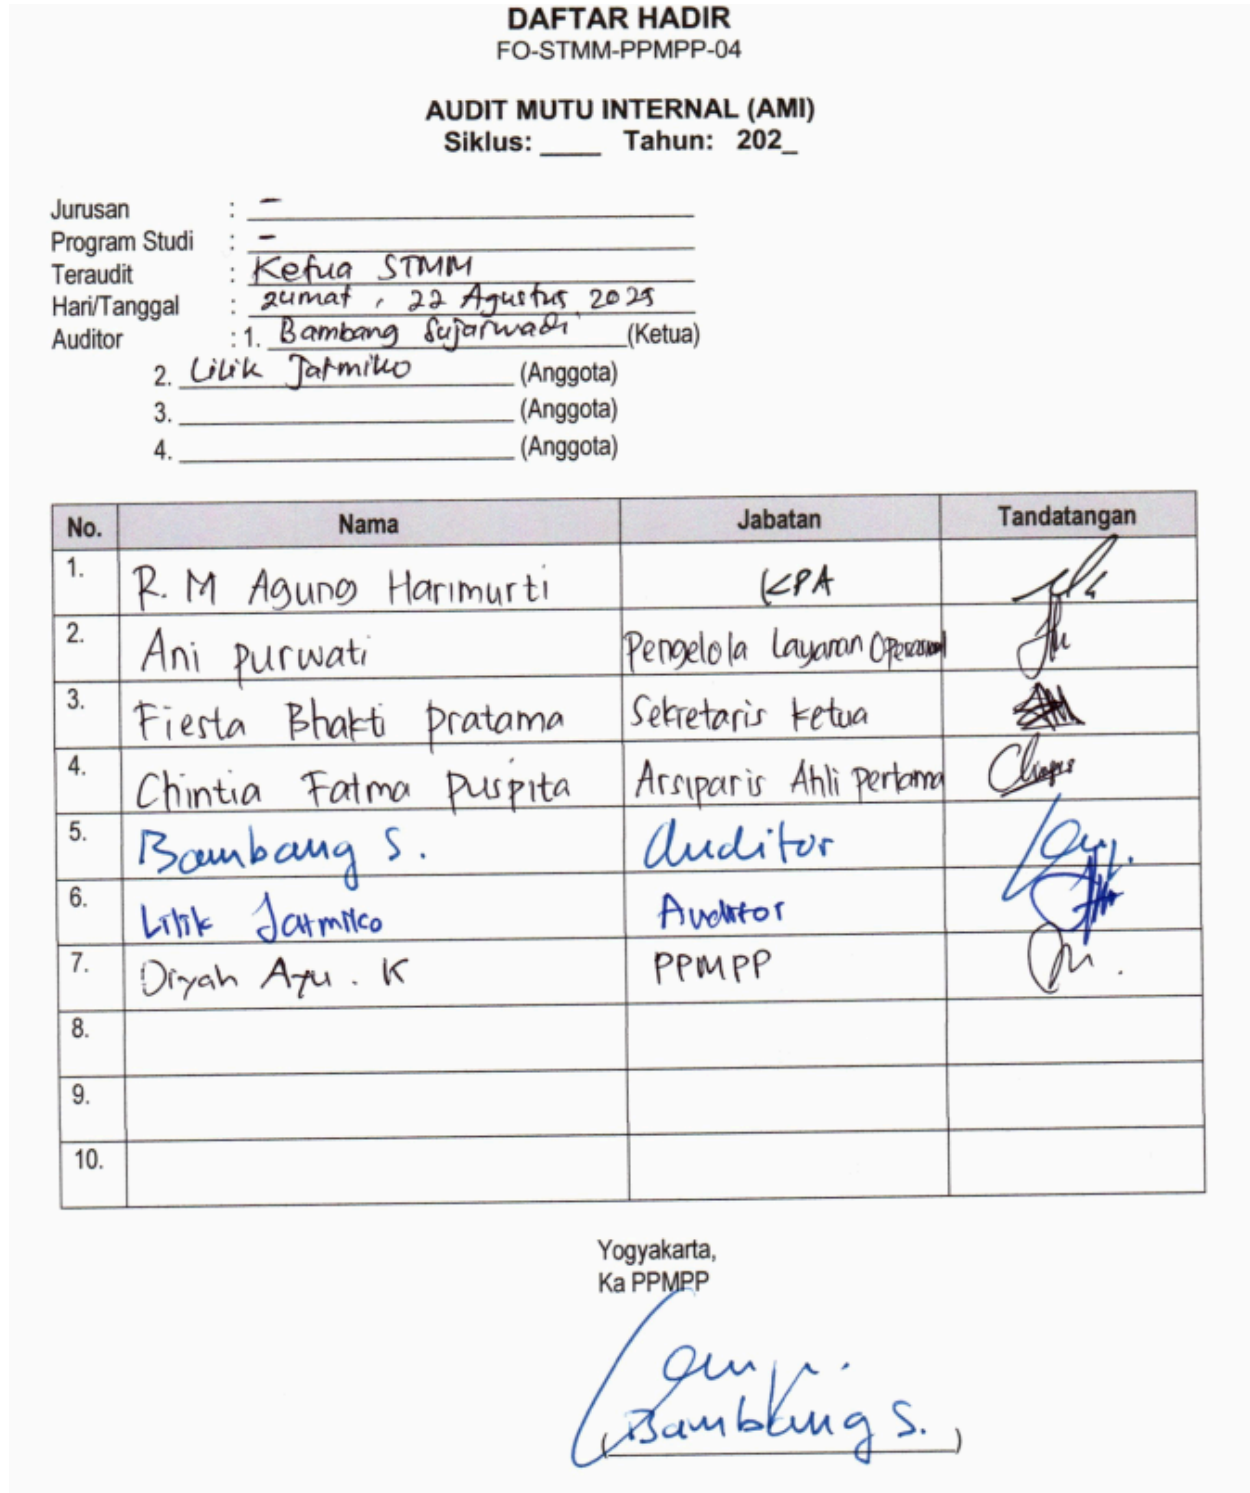 DAFTAR HADIR
FO-STMM-PPMPP-04
AUDIT MUTU INTERNAL (AMI)
Siklus: ____ Tahun: 202_
Jurusan : -
Program Studi : -
Teraudit : Ketua STMM
Hari/Tanggal : Jumat, 22 Agustus 2025
Auditor : 1. Bambang Sujarwadi (Ketua)
2. Lilik Jatmiko (Anggota)
3. ____ (Anggota)
4. ____ (Anggota)
No. Nama Jabatan Tandatangan
1. R. M Agung Harimurti KPA
2. Ani purwati Pengelola Layanan Operasional
3. Fiesta Bhakti pratama Sekretaris ketua
4. Chintia Fatma Puspita Arsiparis Ahli pertama
5. Bambang S. Auditor
6. Lilik Jatmiko Auditor
7. Diyah Ayu. K PPMPP
8.
9.
10.
Yogyakarta,
Ka PPMPP
(Bambang S.)